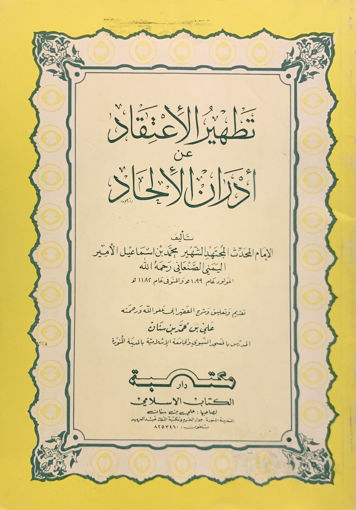 تطهير الاعتقاد
عن
أدران الإلحاد
تأليف
الإمام المحدث المجتهد الشهير محمد بن اسماعيل الأمير
اليمني الصنعاني رحمه الله
المولود عام ١٠٩٩ هـ والمتوفى عام ١١٨٢ هـ
تقديم وتعليق وشرح الفقير إلى عفو الله ورحمته
علي بن محمد بن سنان
المدرس بالمسجد النبوي والجامعة الإسلامية بالمدينة المنورة
مكتبة
دار
الكتاب الاسلامي
لصاحبها : علي بن سنان
المدينة المنورة
تليفون : ٨٢٥٣٤٦٠